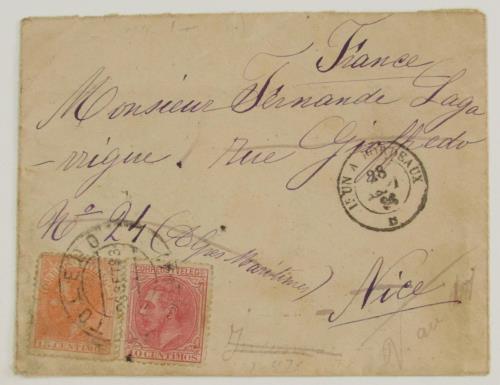 France
Monsieur Fernande Laga
-vrigue. Rue Gioffredo
Nº 24 (Alpes Maritimes)
Nice
IRUN A BORDEAUX
28
B
TOLEDO
CORREOS Y TELEGFS
15 CENTIMOS
10 CENTIMOS